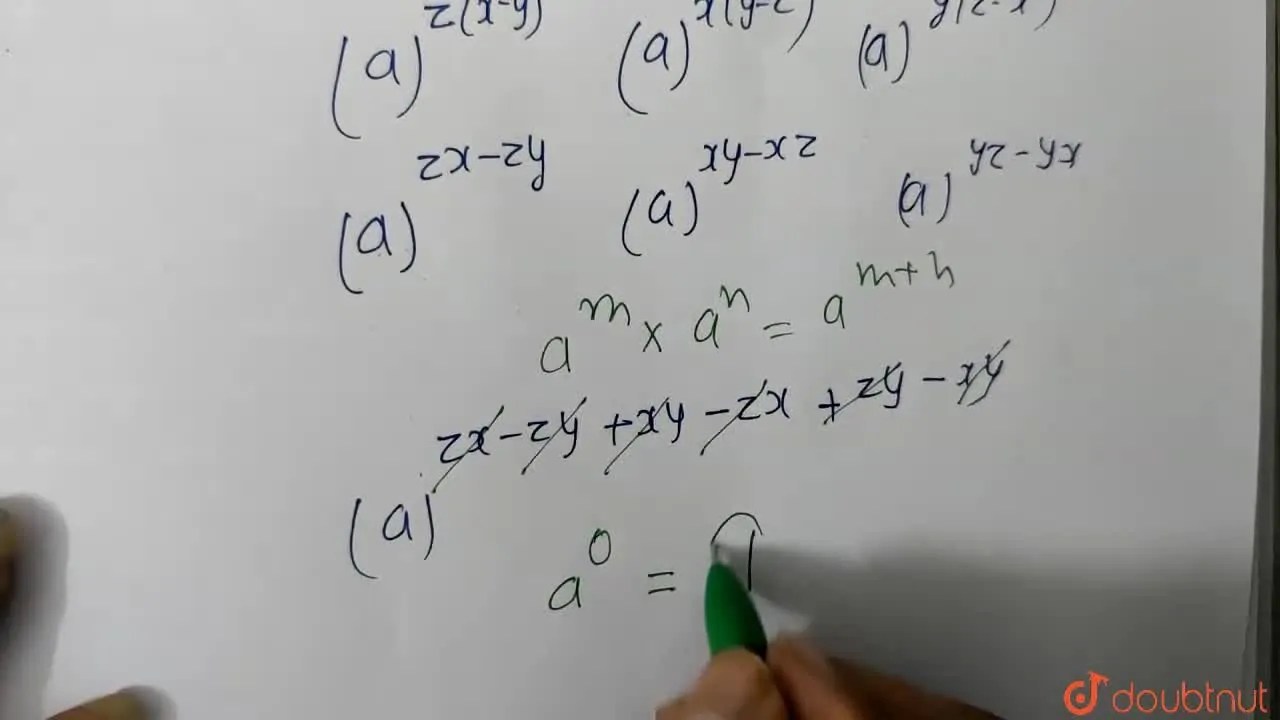 (a)^z(x-y) (a)^x(y-z) (a)^y(z-x)
(a)^zx-zy (a)^xy-xz (a)^yz-yx
a^m × a^n = a^m+n
(a)^zx-zy+xy-zx+zy-xy
a^0 = 1
doubtnut